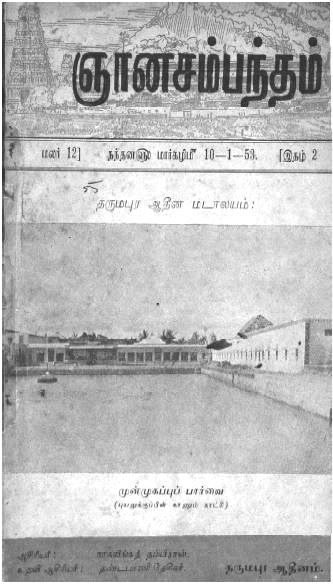 ஞானசம்பந்தம்
மலர் 12] நந்தன௵ மார்கழிமீ 10—1—53. [இதழ் 2
தருமபுர ஆதீன மடாலயம்:
முன்முகப்புப் பார்வை
(புயலுக்குப்பின் காணும் காட்சி)
ஆசிரியர்: சொக்கலிங்கத் தம்பிரான்.
உதவி ஆசிரியர்: தண்டபாணி தேசிகர். தருமபுர ஆதீனம்.